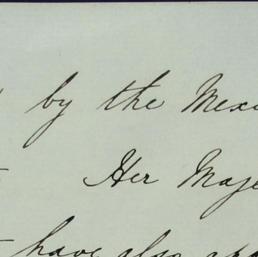 by the Mexi
Her Maje
have also